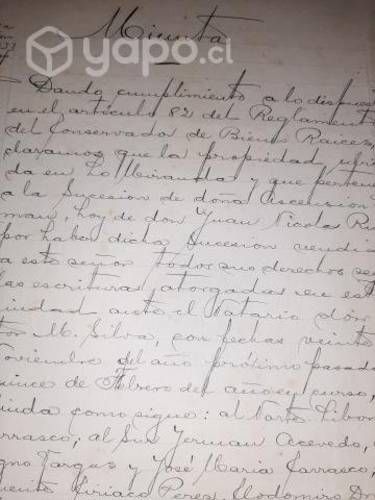 yapo.cl
Minuta
Dando cumplimiento a lo dispues
en el artículo 82 del Reglament
del Conservador de Bienes Raices,
claramos que la propiedad ubi
da en Lo Miranda y que perten
a la Sucesion de doña Ascension
man, hoy de don Juan Nicolas
por haber dicha sucesion vendi
a este señor todos sus derechos se
las escrituras otorgadas en est
iudad ante el Notario don
M. Silva, con fechas veinte
oviembre del año próximo pasad
uince de Febrero del año en curso,
linda como sigue: al Norte Libor
arrasco; al Sur Jerman Acevedo,
Vargas y José Maria Carrasco,
iento Ciriaco Perez, Clodomiro